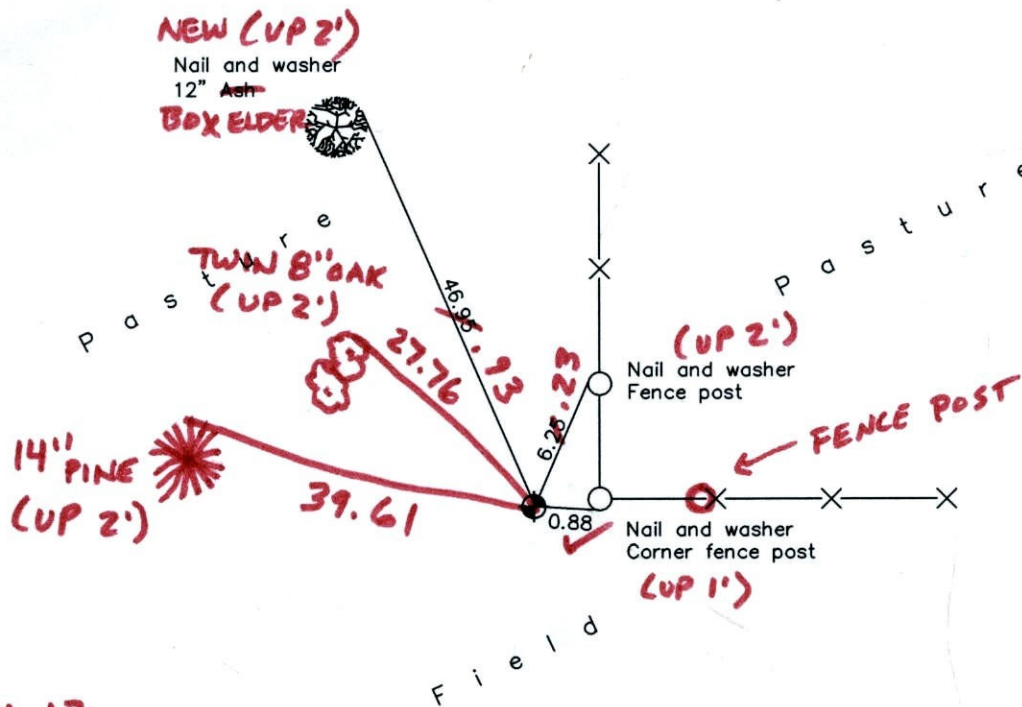 NEW (UP 2')
Nail and washer
12" Ash
BOX ELDER
Pasture
Pasture
TWIN 8" OAK
(UP 2')
46.95
.93
27.76
6.25
.23
(UP 2')
Nail and washer
Fence post
FENCE POST
14" PINE
(UP 2')
39.61
0.88
Nail and washer
Corner fence post
(UP 1')
Field